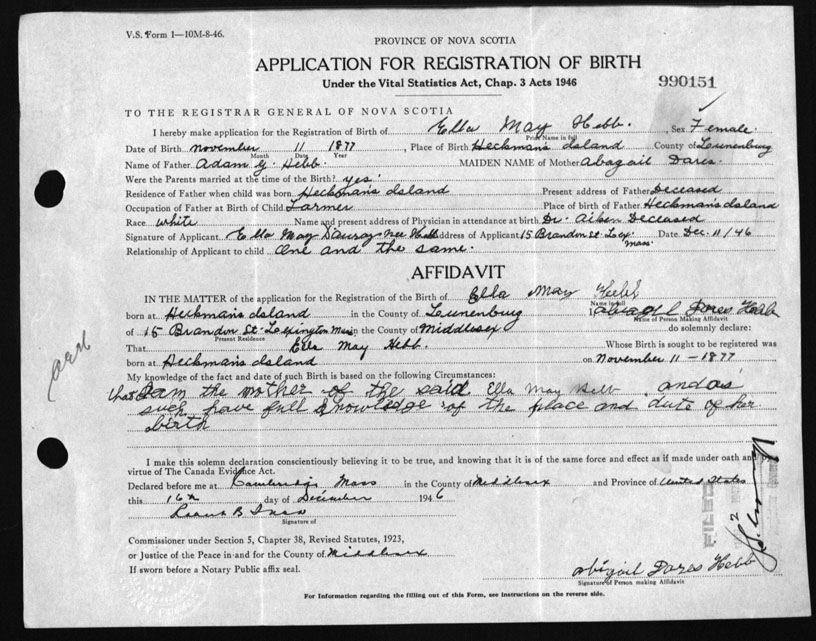 V.S. Form 1—10M-8-46.
PROVINCE OF NOVA SCOTIA
APPLICATION FOR REGISTRATION OF BIRTH
Under the Vital Statistics Act, Chap. 3 Acts 1946
990151
TO THE REGISTRAR GENERAL OF NOVA SCOTIA
I hereby make application for the Registration of Birth of Ella May Hebb. Sex Female.
Print Name in full
Date of Birth November 11 1877, Place of Birth Heckman's Island County of Lunenburg
Month Date Year
Name of Father Adam G. Hebb. MAIDEN NAME of Mother Abagail Dares.
Were the Parents married at the time of the Birth? yes.
Residence of Father when child was born Heckman's Island Present address of Father Deceased
Occupation of Father at Birth of Child Farmer Place of birth of Father Heckman's Island
Race white Name and present address of Physician in attendance at birth Dr. Aiken Deceased
Signature of Applicant Ella May Nee Hebb Address of Applicant 15 Brandon St. Lex. Mass. Date Dec. 11/46
Relationship of Applicant to child One and the same.
AFFIDAVIT
IN THE MATTER of the application for the Registration of the Birth of Ella May Hebb
Name in full
born at Heckman's Island in the County of Lunenburg I, Abagil Dores Hebb
Name of Person Making Affidavit
of 15 Brandon St. Lexington Mass in the County of Middlesex do solemnly declare:
Present Residence
That Ella May Hebb. Whose Birth is sought to be registered was
born at Heckman's Island on November 11-1877
My knowledge of the fact and date of such Birth is based on the following Circumstances:
that I am the mother of the said Ella May Hebb and as
such have full knowledge of the place and date of her
birth
I make this solemn declaration conscientiously believing it to be true, and knowing that it is of the same force and effect as if made under oath and
virtue of The Canada Evidence Act.
Declared before me at Cambridge Mass in the County of Middlesex and Province of United States
this 16th day of December 1946
Signature of
Commissioner under Section 5, Chapter 38, Revised Statutes, 1923,
or Justice of the Peace in and for the County of Middlesex
If sworn before a Notary Public affix seal.
Abigail Dores Hebb
Signature of Person making Affidavit
For Information regarding the filling out of this Form, see instructions on the reverse side.